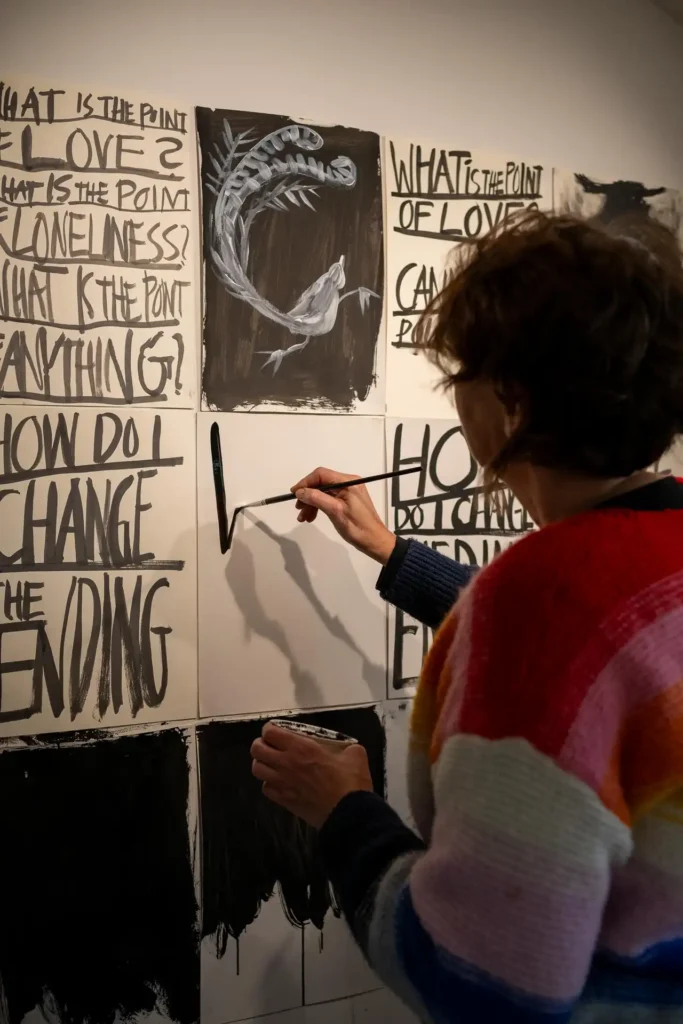 WHAT IS THE POINT
OF LOVE?
WHAT IS THE POINT
OF LONELINESS?
WHAT IS THE POINT
OF ANYTHING?
WHAT IS THE POINT
OF LOVE?
HOW DO I
CHANGE
THE
ENDING
DO I CHANGE